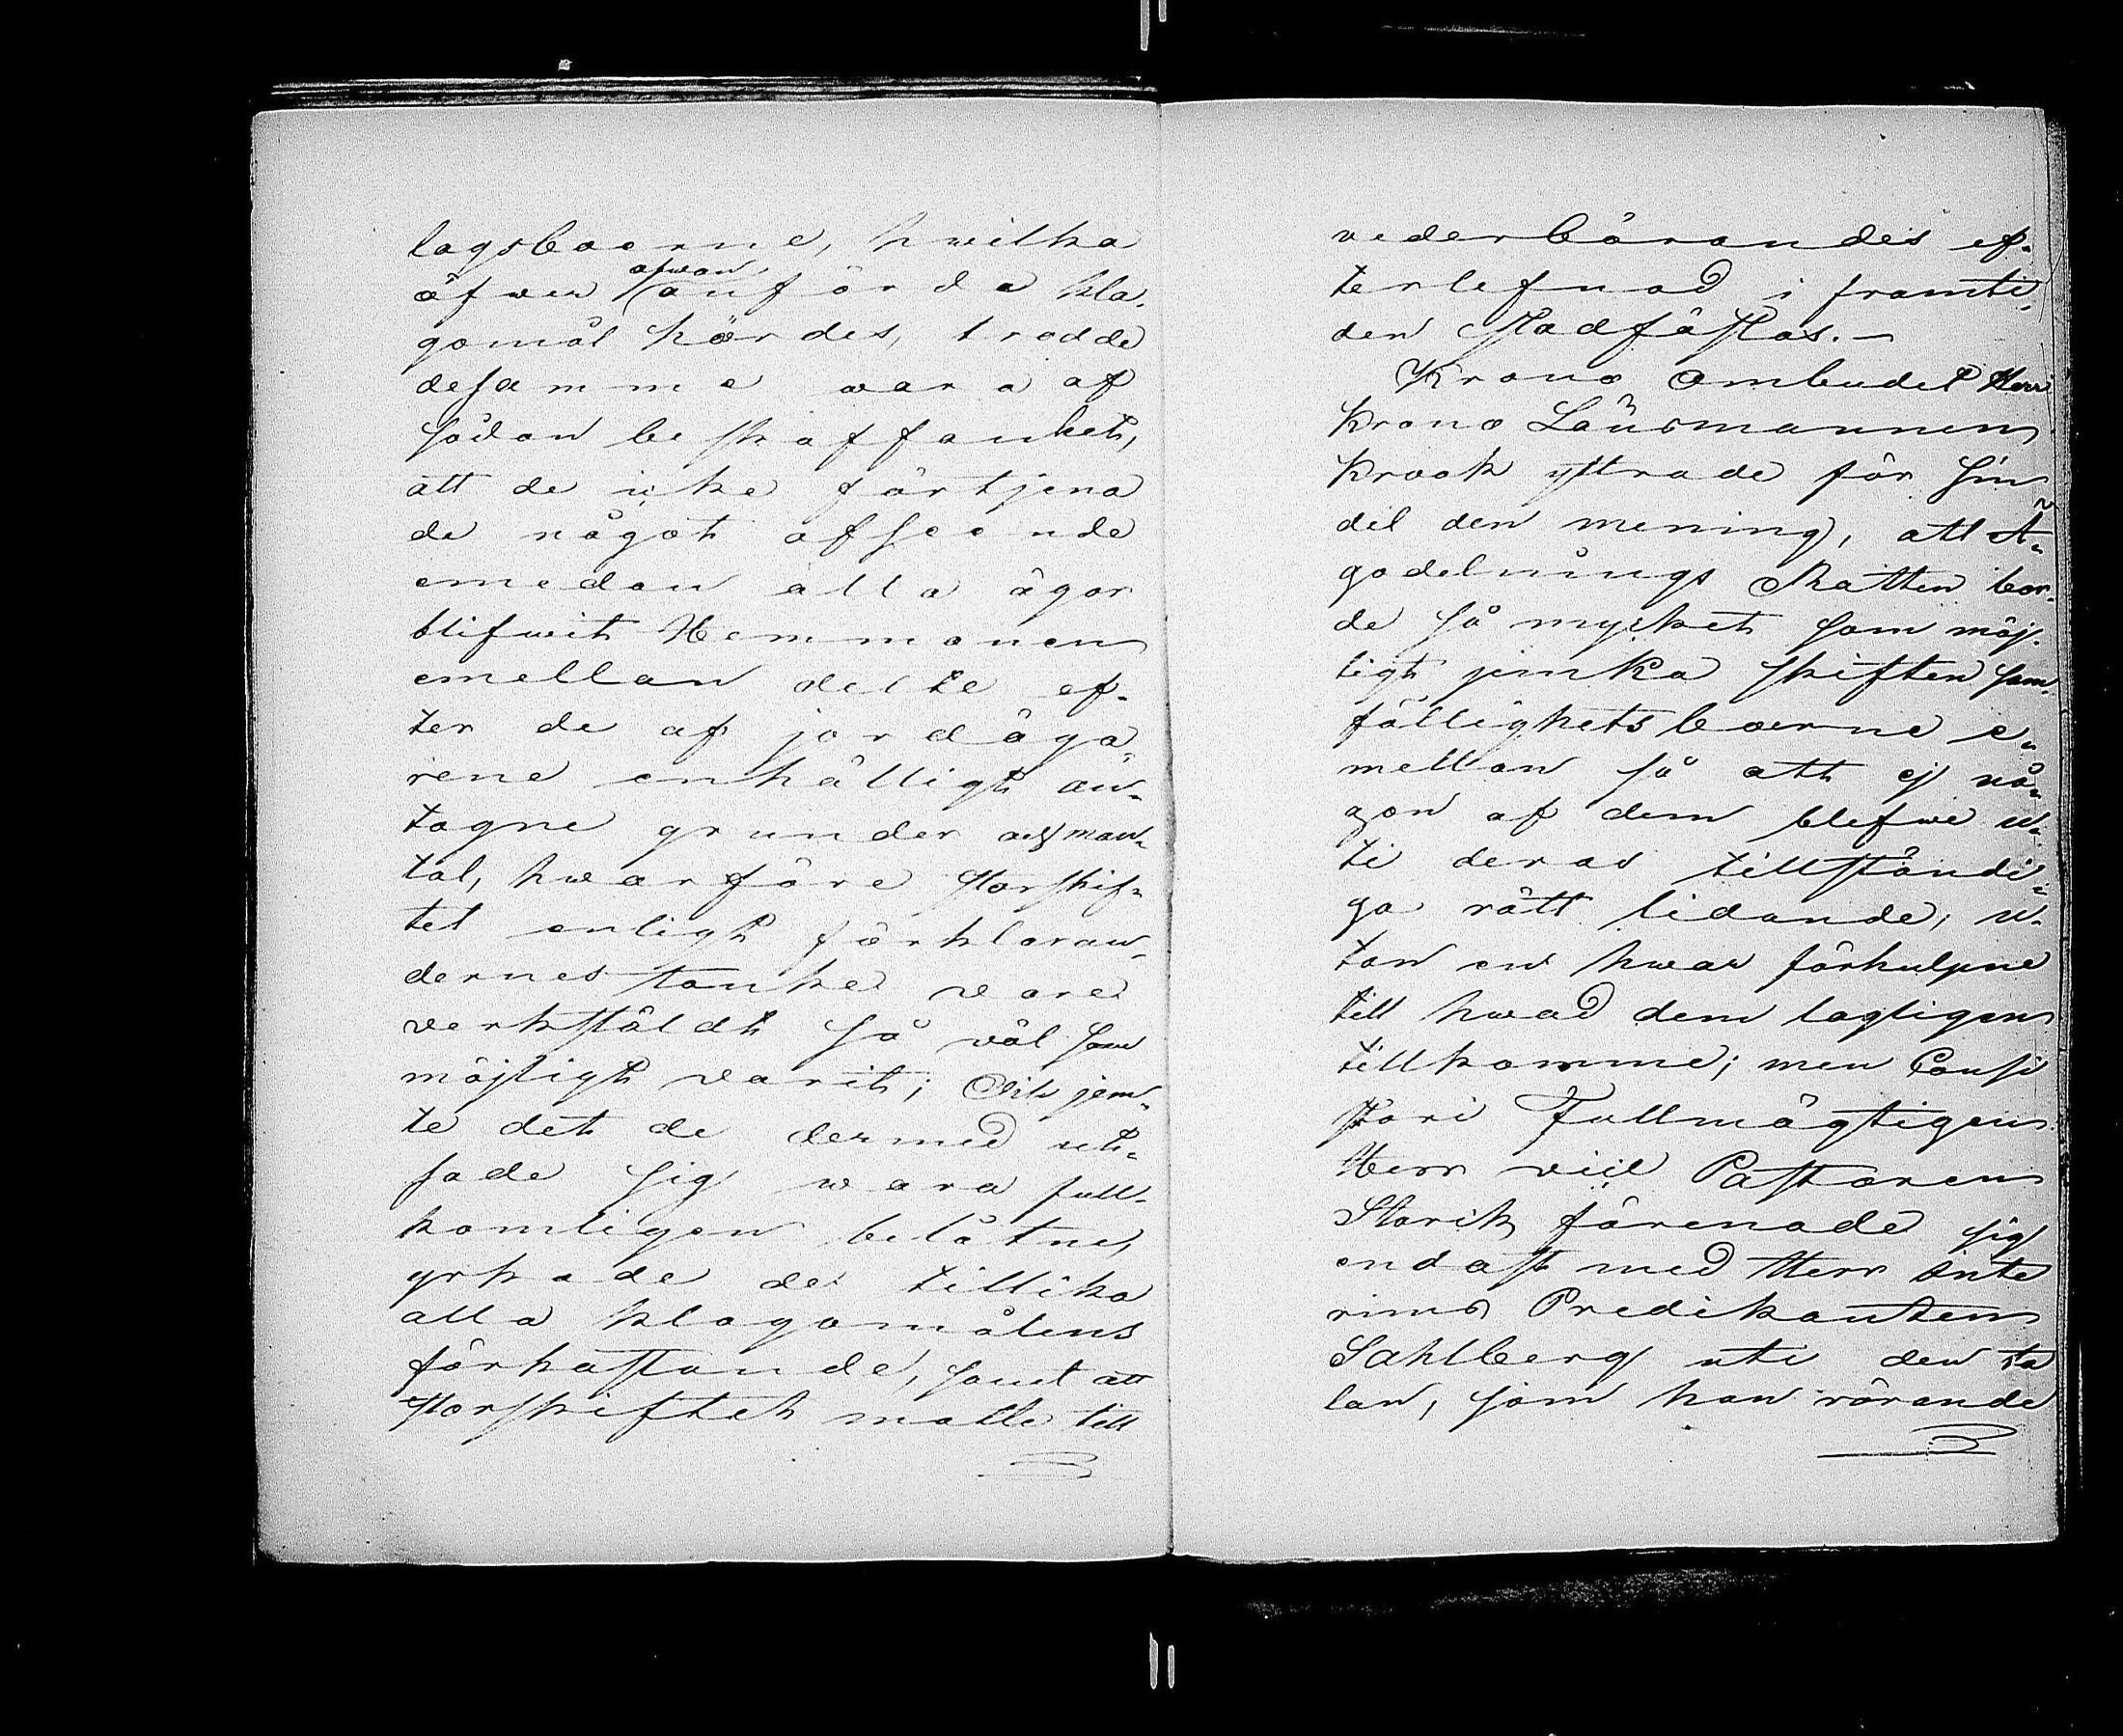 lagsboerne, hvilka
ofwan
öfwer anförda kla-
gomål hördes, trodde
desamme wara af
sådan beskaffanhet,
att de icke förtjena
de något afseende
emedan alla ägor
blifwit Hemmanen
emellan delte ef-
ter de af jordäga-
rene enhälligt an-
tagne grunder och man-
tal, hwarföre storskif-
tet enligt förklaran-
dernes tanke vore
verkstäldt så väl som
möjligt varit; Och jem-
te det de dermed ut-
sade sig wara full-
komligen belåtne,
yrkade de tillika
alla klagomålens
förkastande, samt att
storskiftet måtte till
vederbörandes ef-
terlefnad i framti-
den stadfästas.-
Krono Ombudet Herr
Krono Länsmannen
Krook yttrade för sin
del den mening, att Ä-
godelnings Rätten bor-
de så mycket som möj-
ligt jemka skiften sam-
fällighetsboerne e-
mellan så att ej nå-
gon af dem blefwe u-
ti deras tillständi-
ga rätt lidande, u-
tan en hwar förhulpne
till hwad dem lagligen
tillkomme; men Consi
stori Fullmägtigen
Herr viice Pastoren
Starik förenade sig
endast med Herr Inte
rims Predikanten
Sahlberg uti den ta
lan, som han rörande